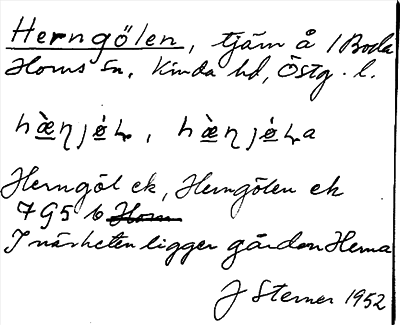 Herngölen, tjärn å 1 Boda
Horns sn, Kinda hd, Östg. l.
hæ̀ŋjó̱ꞎ, hæ̀ŋjó̱ꞎa
Herngöl ek, Herngölen ek
7G5 b Horn
I närheten ligger gården Herna
J Sterner 1952